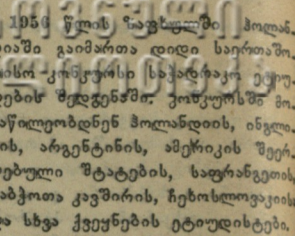 1956 წლის ზაფხულში ჰოლან-
დიაში გაიმართა დიდი საერთაშო-
რისო კონკურსი საჭადრაკო ეტიუ-
დების შედგენაში. კონკურსში მო-
ნაწილეობდნენ ჰოლანდიის, ინგლი-
ის, არგენტინის, ამერიკის შეერ-
ებული შტატების, საფრანგეთის,
საბჭოთა კავშირის, ჩეხოსლოვაკიის
და სხვა ქვეყნების ეტიუდისტები.